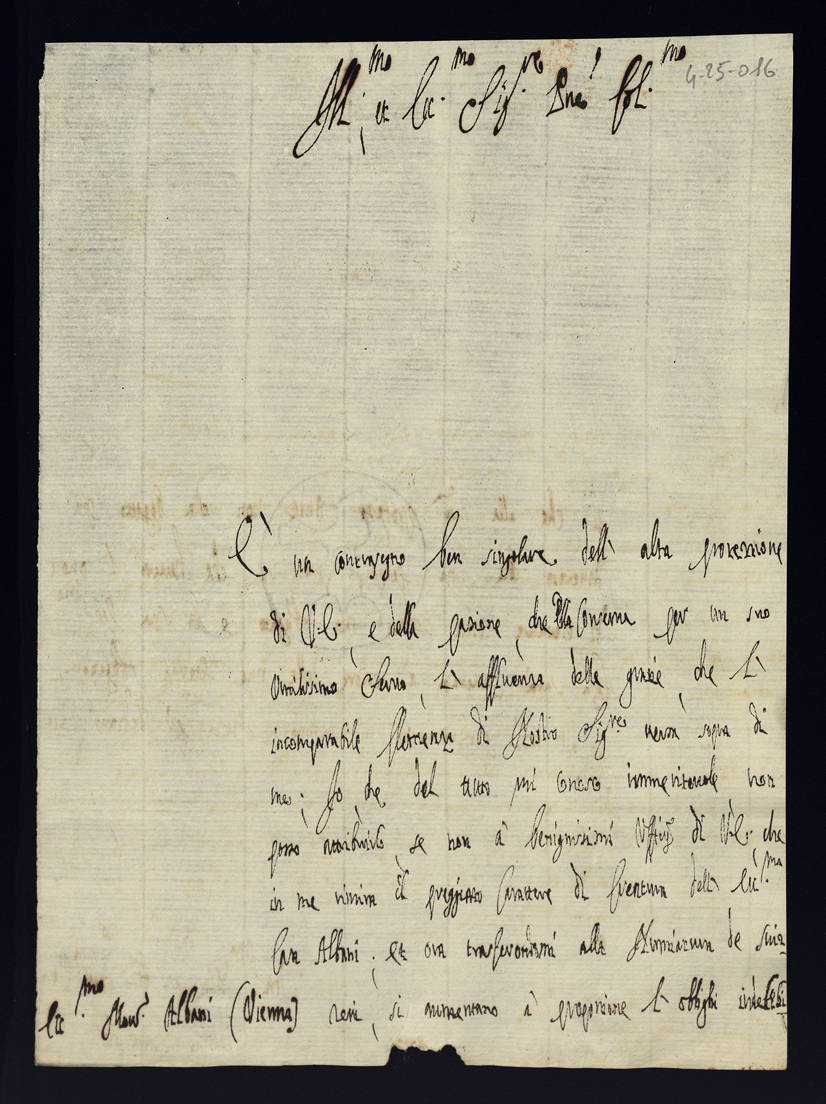 4-25-016
Ill.mo, et Ecc.mo Sig.re Pne Col.mo
È un contrasegno ben singolare dell' alta protezzione
di V.E., e della passione, che Ella Conserva per un suo
Umilissimo Servo, l' affluenza delle grazie, che l'
incomparabile Clemenza di Nostro Sig.re versa sopra di
me; Io, che del tutto mi conosco immeritevole non
posso attribuirlo, se non a' benignissimi Uffizij di V.E. che
in me rimira il preggiato Carattere di Creatura dell' Ecc.ma
Casa Albani; et ora trasferendomi alla Nunziatura de Sviz-
zeri, si aumentano a' proporzione l' oblighi indelebi
Ecc.mo Mons.r Albani (Vienna)